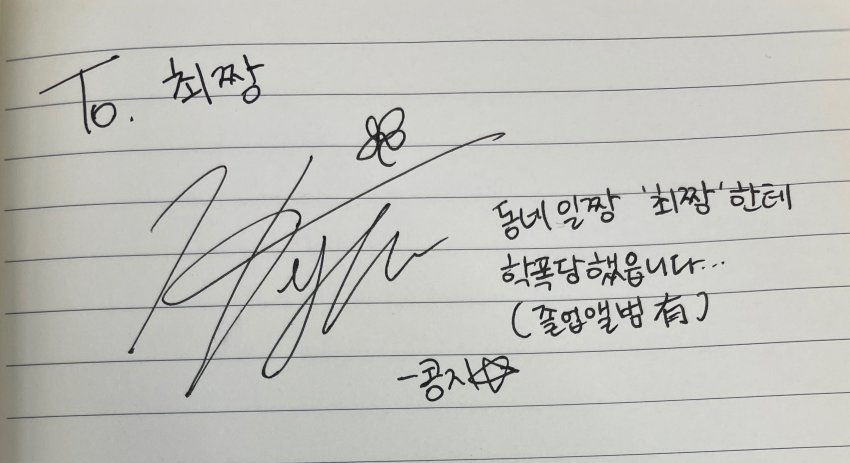 To. 최짱
동네 일짱 '최짱' 한테
학폭당했읍니다...
(졸업앨범 有)
-콩지